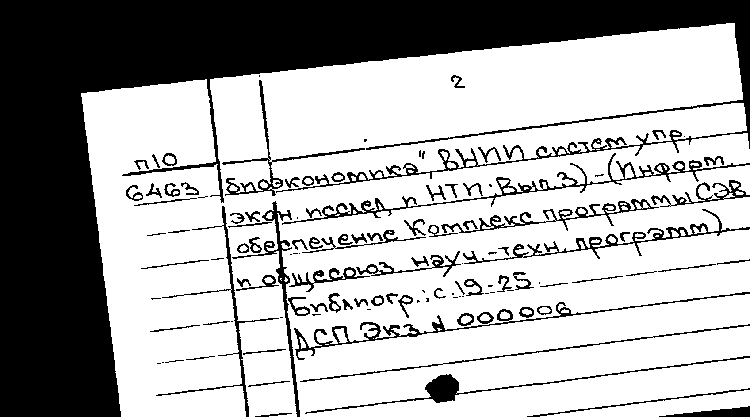 2
п10
6463
биоэкономика", ВНИИ систем упр,
экон. исслед. и НТИ; Вып.3).-(Информ.
обеспечение Комплекс программы СЭВ
и общесоюз. науч.-техн. программ).
Библиогр.: с.19-25.
ДСП Экз. N 000006